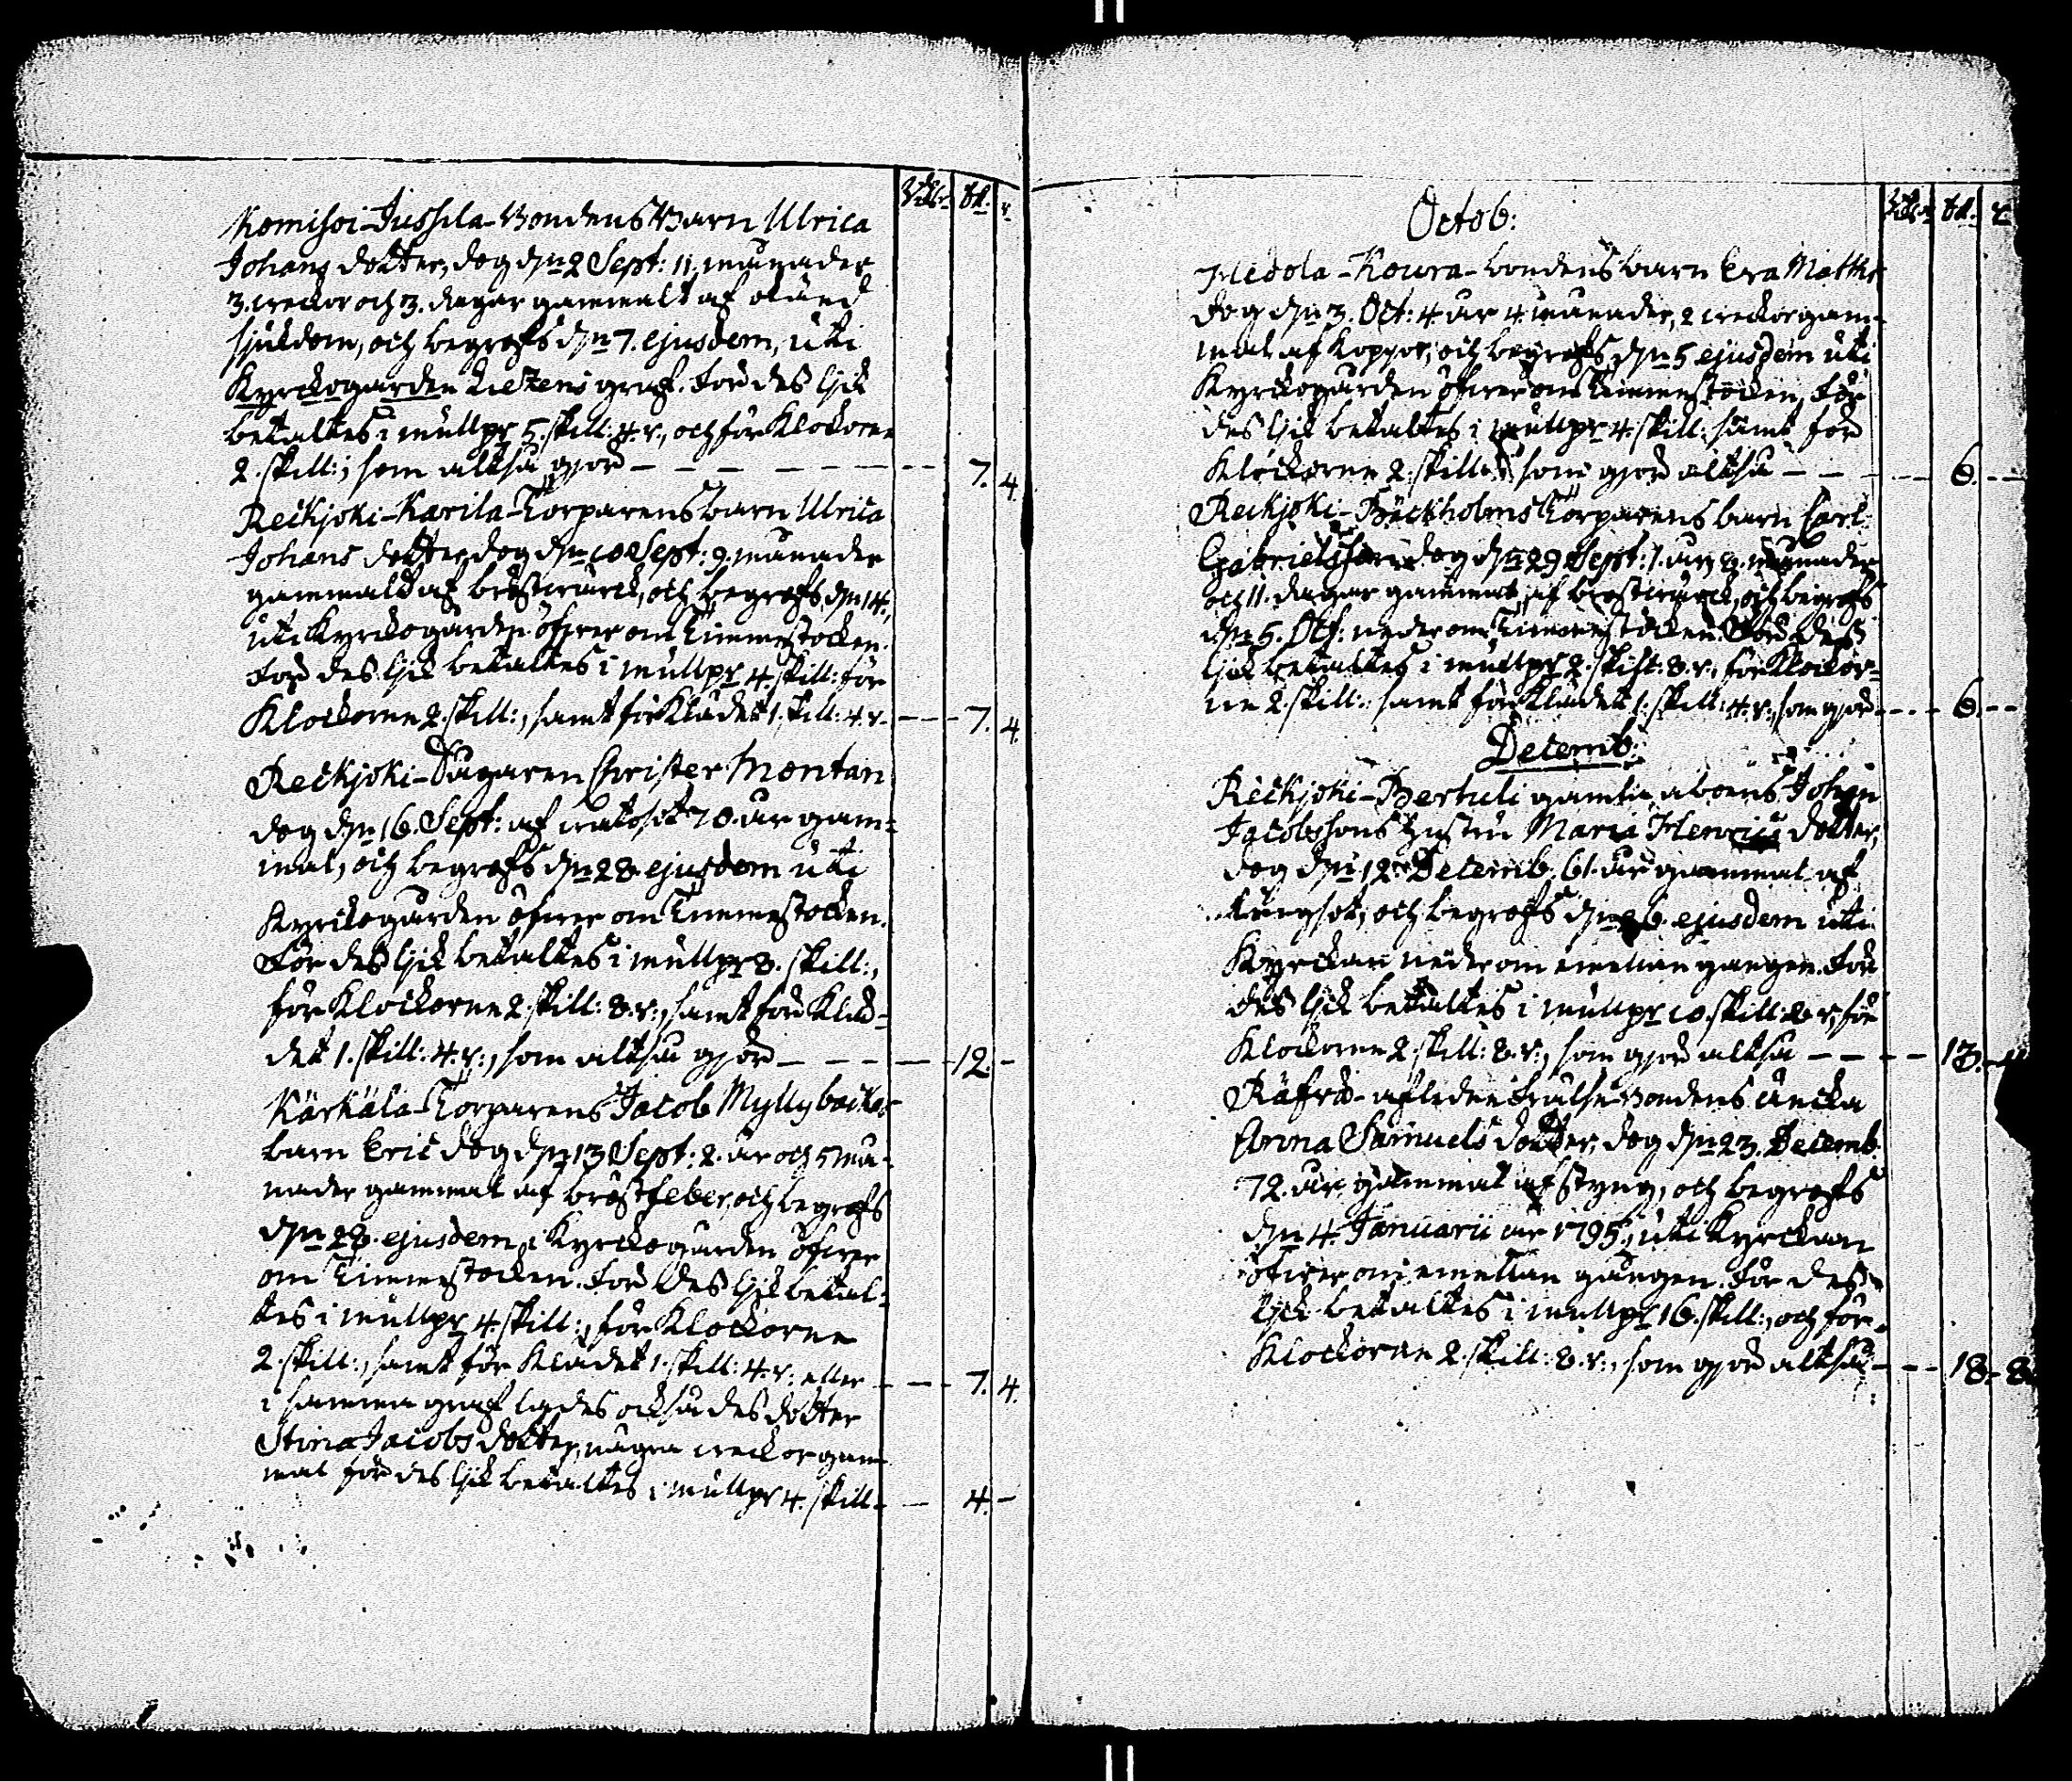 Rdlr. sk. r.
Komisoi-Jussila-Bondens Barn Ulrica
Johans dotter, dog den 2 Sept: 11. månader
3. weckor och 3. dagar gammalt af okänd
sjukdom, och begrofs den 7. ejusdem, uti
Kyrckogården graf. För des lijk
betaltes i mullpg 5. skill: 4. r., och för Klockorne
2. skill:, som altså gjör — — — 7. 4.
Reckjoki-Karila-Torparens barn Ulrica
Johans dotter, dog den 10 Sept: 9. månader
gammalt af bröstwärck, och begrofs den 14.,
uti Kyrckogården öfwer om Timmerstocken.
För des lijk betaltes i mullpg 4. skill: för
Klockorne 2. skill:, samt för Klädet 1. skill: 4. r. — — — 7. 4.
Reckjoki-Christer Montan
dog den 16. Sept: af watusot 70. år gam=
mal, och begrofs den 28. ejusdem uti
Kyrckogården öfwer om Timmerstocken.
För des lijk betaltes i mullpg 8. skill:,
för Klockorne 2. skill: 8. r:, samt för Kläd=
det 1. skill: 4. r:, som altså gjör — — — 12. —
Kärkälä-Torparens Jacob Myllybackas
barn Eric dog den 13 Sept: 2. år och 5 må=
nader gammal af bröstfeber, och begrofs
den 28. ejusdem i Kyrckogården öfwer
om Timmerstocken. För des lijk betal=
tes i mullpg 4. skill:, för Klockorne
2. skill:, samt för Klädet 1. skill: 4. r: eller — — — 7. 4.
i samma graf lades också des dotter
Stina Jacobs dotter, några weckor gam=
mal för des lijk betaltes i mullpg 4. skill — — 4. —
Rdlr. sk. r.
Octob:
Hedola-Koura-bondens barn Eva Matths
dog den 3. Oct: 4 år 4 månader, 2 weckor gam=
mal af Koppor, och begrofs den 5 ejusdem uti
Kyrckogården öfwer om Timmerstocken, För
des lijk betaltes i mullpg 4. skill: samt för
Klockorne 2. skill: som gjör altså — — — 6. —
Reckjoki-Bäckholms Torparens barn Carl
Gabrielsson dog den 29 Sept: 1. år, 8. månader
och 11. dagar gammal, af bröstwärck, och begrofs
den 5. Oct: neder om Timmerstocken. För des
lijk betaltes i mullpg 2. skill: 8. r., för Klockor=
ne 2. skill: samt för Klädet 1. skill: 4. r:, som gjör — — 6. —
Decemb:
Reckjoki-Bertuli gamla aboens Johan
Jacobssons hustru Maria Henrics dotter,
dog den 12 Decemb. 61. år gammal af
lungsot, och begrofs den 26. ejusdem uti
Kyrckan neder om emellan gången. För
des lijk betaltes i mullpg 10. skill: 8 r, för
Klockorne 2. skill: 8. r:, som gjör altså — — — 13. 4
Räfsä- afledne Frälse Bondens Äncka
Anna Samuels dotter, dog den 23. Decemb.
72. år gammal af styng, och begrofs
den 4. Januarii år 1795., uti Kyrckan
öfwer om emellan gången. För des
lijk betaltes i mullpg 16. skill:, och för
Klockorne 2. skill: 8. r:, som gjör altså — — — 18. 8.